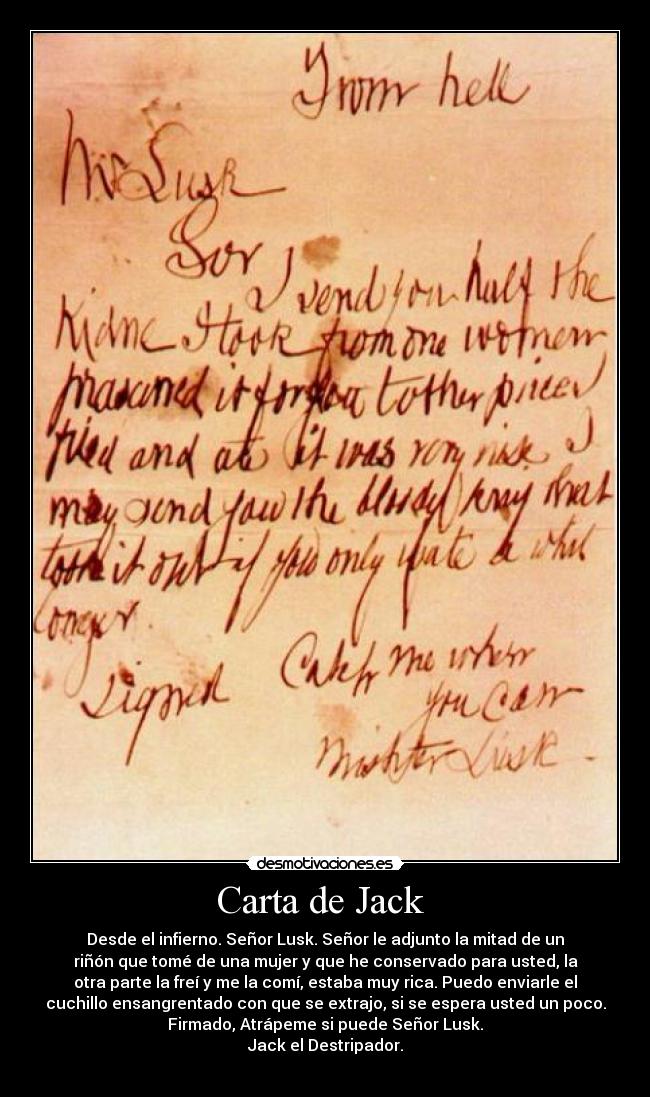 From hell
Mr Lusk
Sor
I send you half the
Kidne I took from one women
prasarved it for you tother piece I
fried and ate it was very nise I
may send you the bloody knif that
took it out if you only wate a whil
longer.
signed Catch me when
you Can
Mishter Lusk.
desmotivaciones.es
Carta de Jack
Desde el infierno. Señor Lusk. Señor le adjunto la mitad de un
riñón que tomé de una mujer y que he conservado para usted, la
otra parte la freí y me la comí, estaba muy rica. Puedo enviarle el
cuchillo ensangrentado con que se extrajo, si se espera usted un poco.
Firmado, Atrápeme si puede Señor Lusk.
Jack el Destripador.